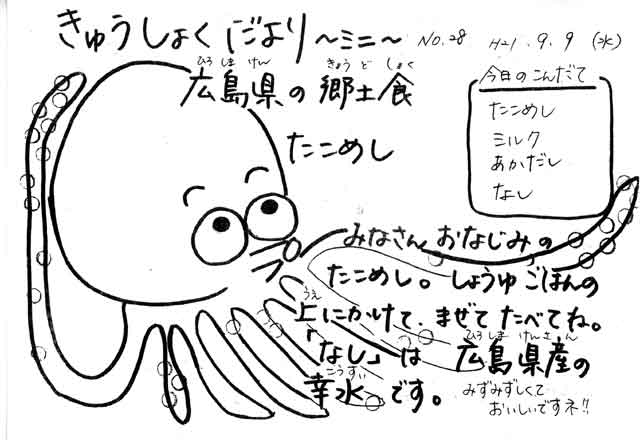 きゅうしょくだより～ミニ～ NO.28 H21.9.9(水)
ひろしまけん きょうどしょく
広島県の郷土食
たこめし
今日のこんだて
たこめし
ミルク
あかだし
なし
みなさんおなじみの
たこめし。しょうゆごはんの
うえ
上にかけて、まぜてたべてね。
ひろしまけんさん
「なし」は広島県産の
こうすい
幸水です。
みずみずしくて
おいしいですネ!!